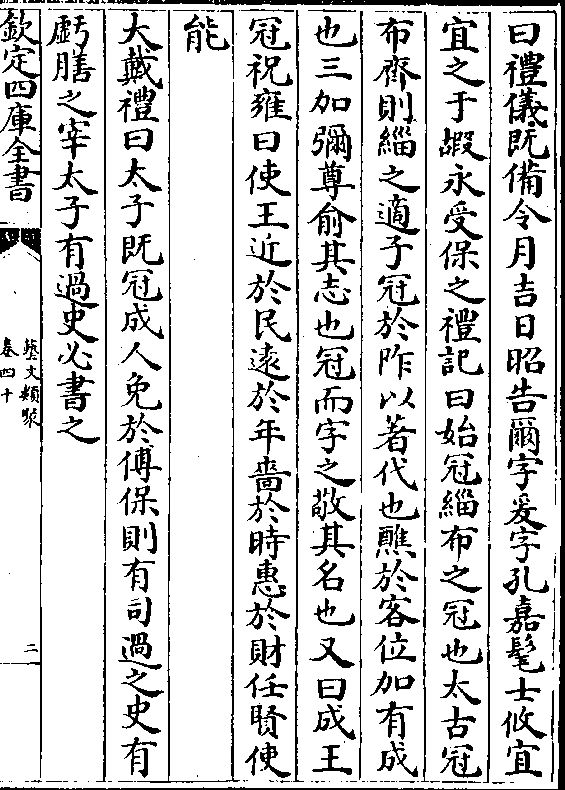 曰禮儀既備令月吉日昭告爾字爰字孔嘉髦士攸宜
宜之于嘏永受保之禮記曰始冠緇布之冠也太古冠
布齊則緇之適子冠於阼以著代也醮於客位加有成
也三加彌尊俞其志也冠而字之敬其名也又曰成王
冠祝雍曰使王近於民逺於年嗇於時惠於財任賢使
能
大戴禮曰太子既冠成人免於傅保則有司過之史有
虧膳之宰太子有過史必書之
欽定四庫全書
藝文類聚
卷四十
二